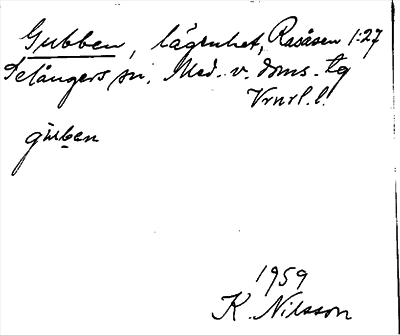 Gubben, lägenhet, Rasåsen 1:27
Selångers sn. Med. v. doms. tg
Vrnrl. l.
gub̲en
1959
K. Nilsson